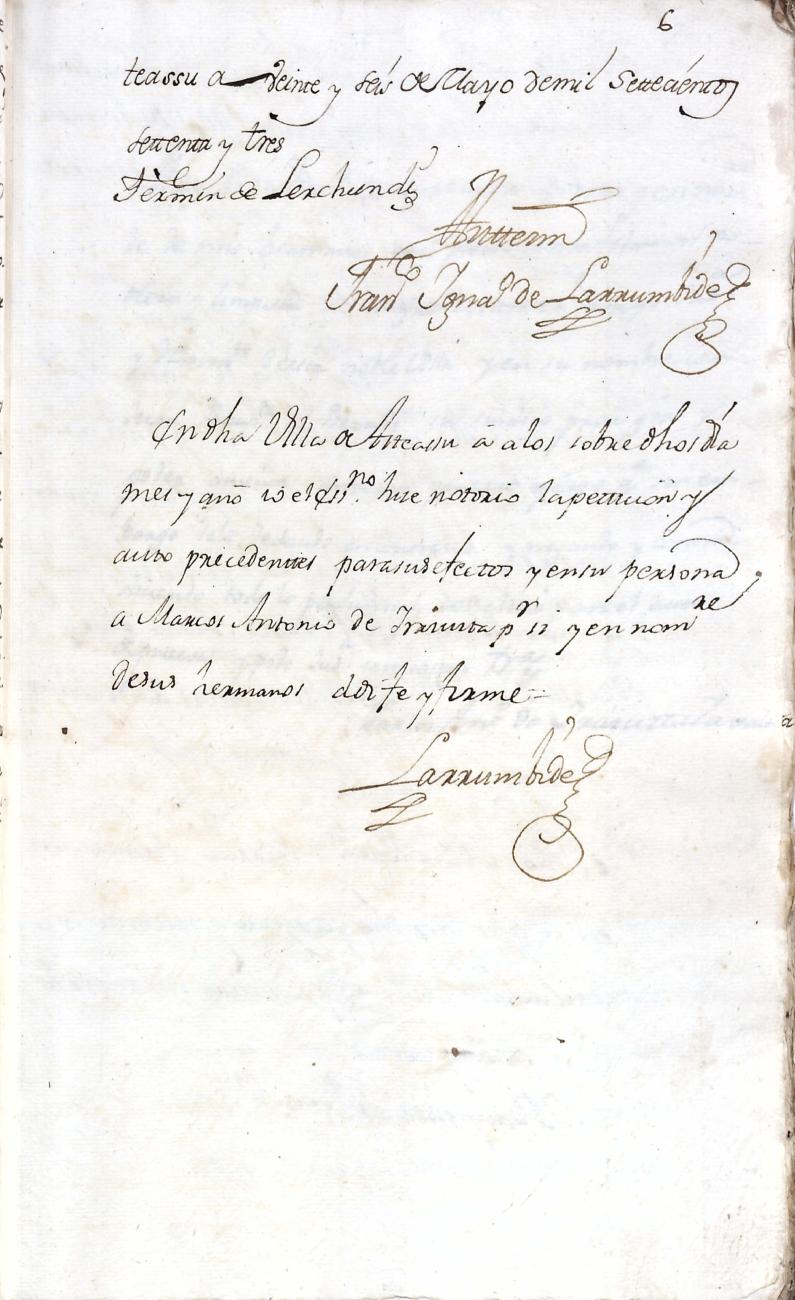 6
teassu a Veinte y seis de Mayo de mil Settecientos
settenta y tres
Fermin de Lerchundi
Antte mi
Fran.co Igna.o de Larrumbide
En dha Villa de Asteassu a a los sobre dhos dia
mes y año io el ess.no hice notorio la peticion y
auto precedentes para sus efectos y en su persona
a Marcos Antonio de p.r si y en nomre
de sus hermanos doi fe y firme =
Larrumbide